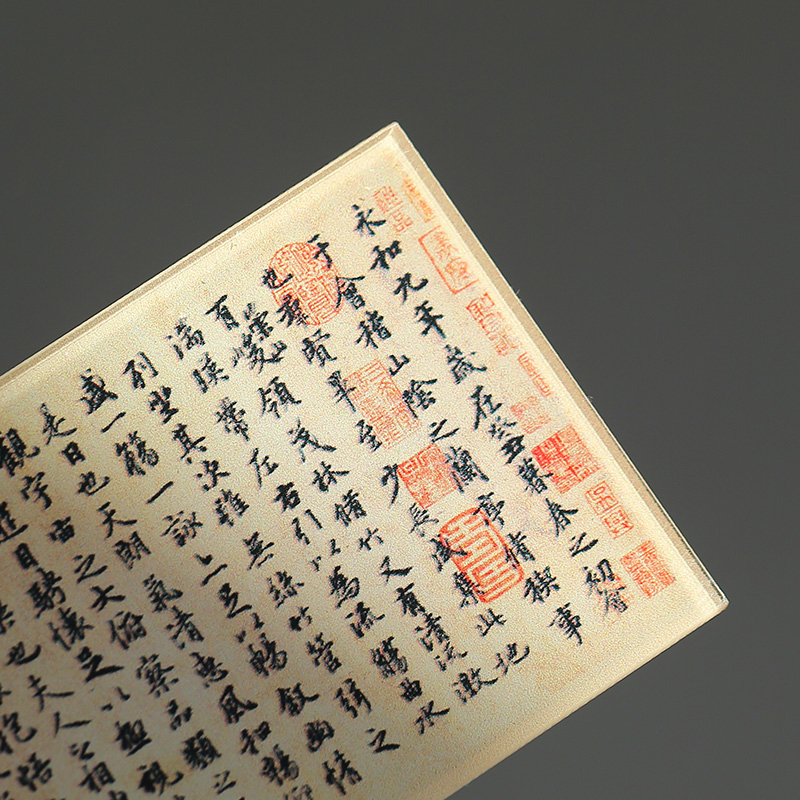 永和九年歲在癸丑暮春之初會
于會稽山陰之蘭亭脩稧事
也羣賢畢至少長咸集此地
有崇山峻領茂林脩竹又有清流激
湍暎帶左右引以為流觴曲水
列坐其次雖無絲竹管弦之
盛一觴一詠亦足以暢敘幽情
是日也天朗氣清惠風和暢仰
觀宇宙之大俯察品類之
遊目騁懷足以極視
也夫人之相
抱悟